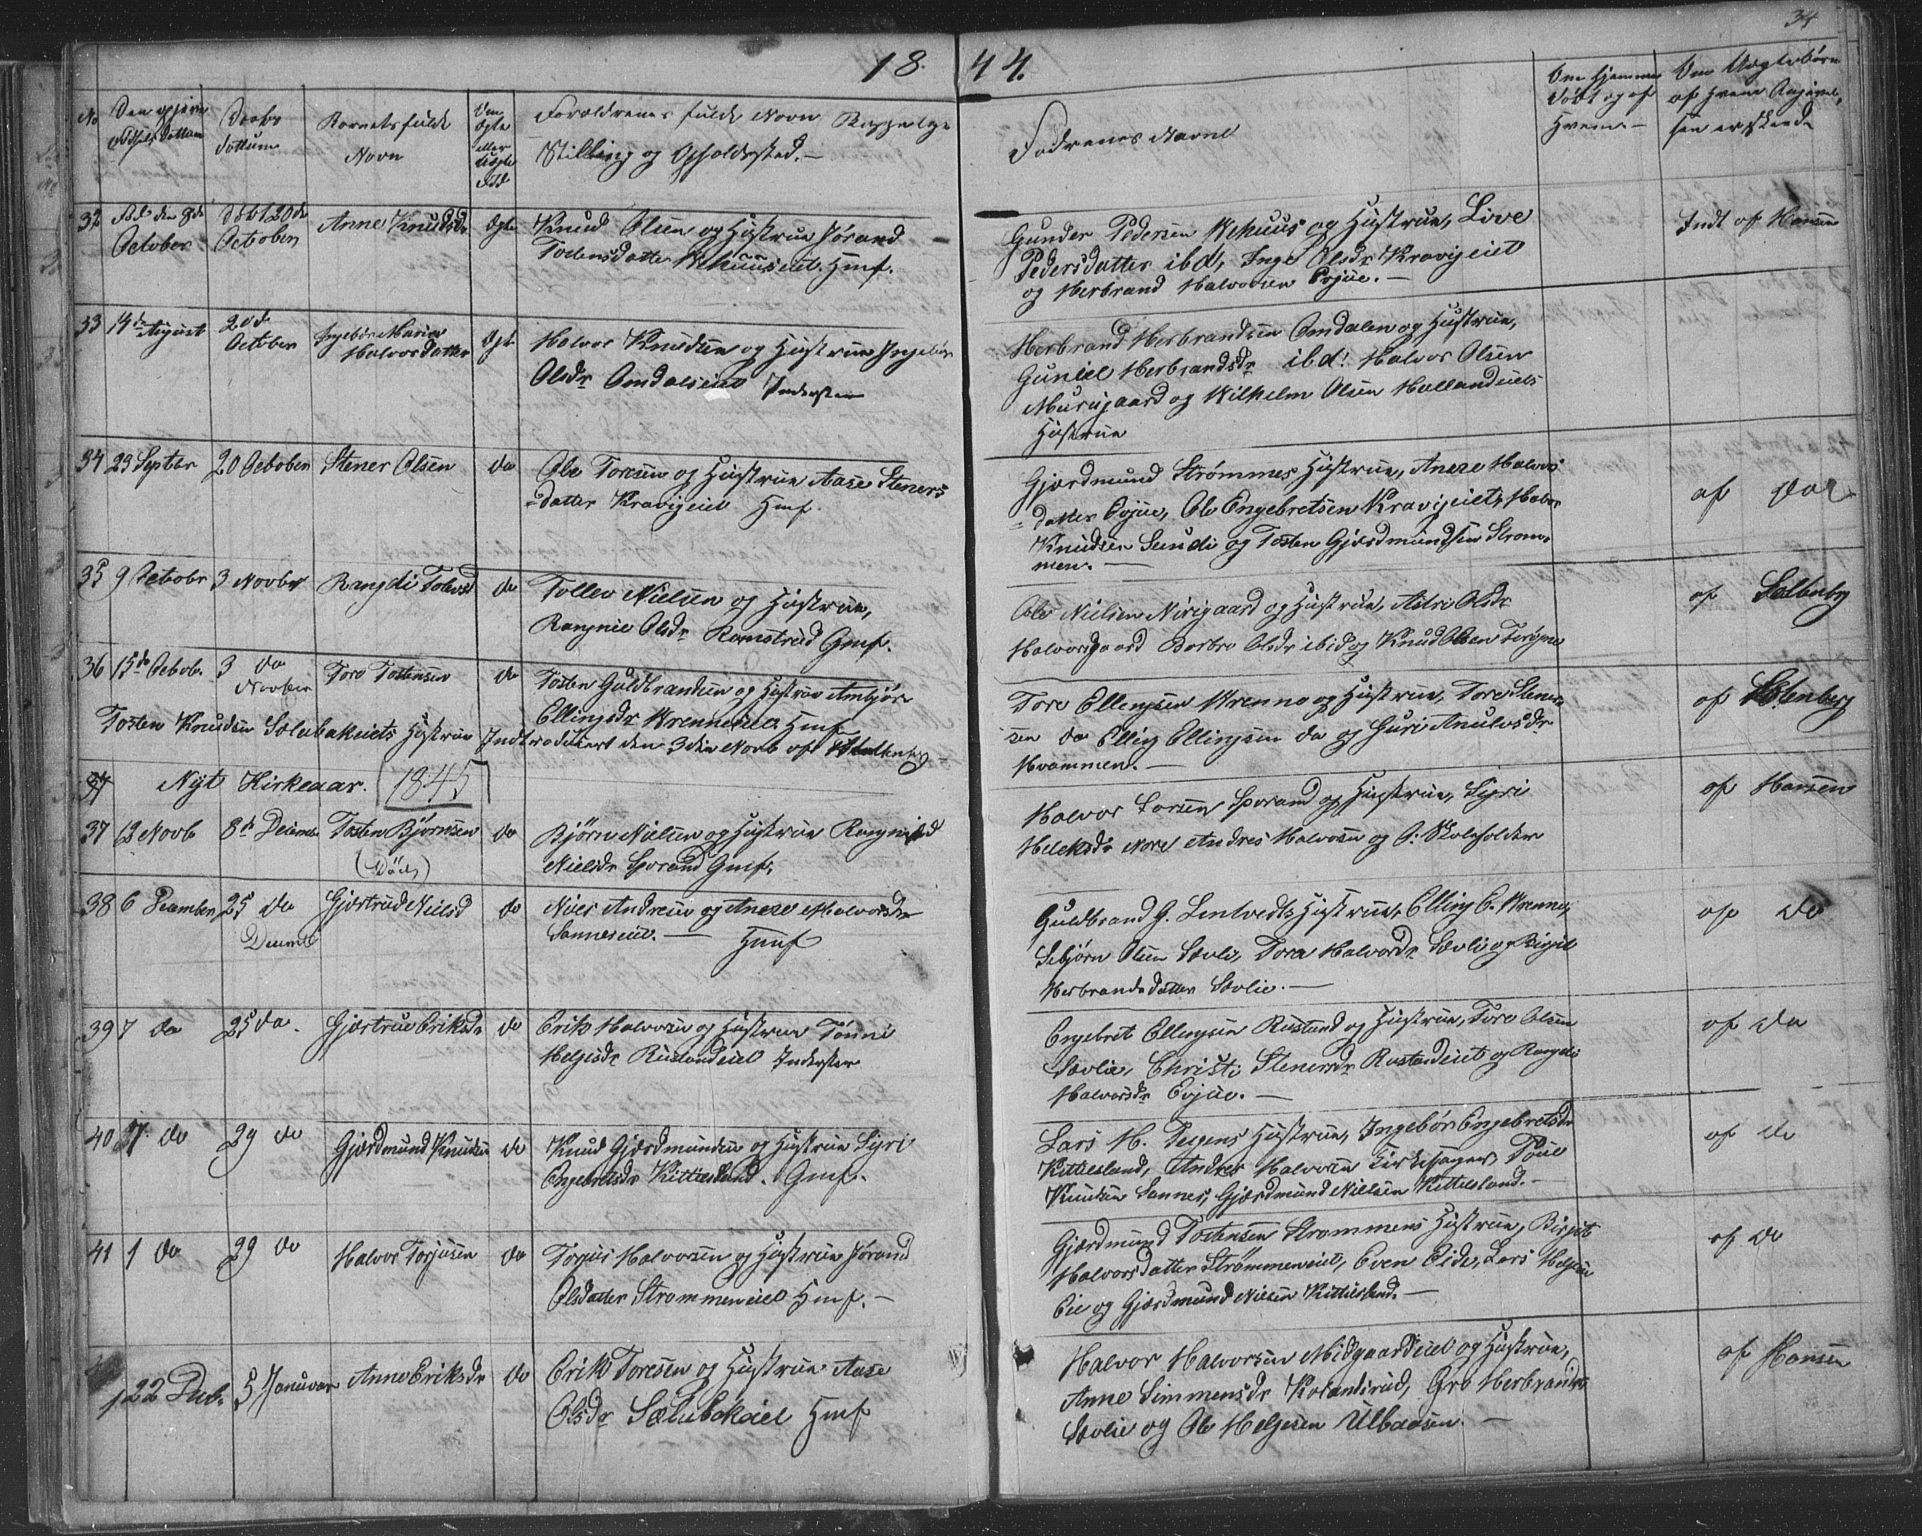 34
18 44.
No
Den opgivne
Fødsels Dattum
Daabs
Dattum
Barnets fulde
Navn
Om
Ægte
eller
Uægte
Fød
Forældrenes fulde Navn
Stilling og Opholdssted.—
Fadrenes Navne
Om Hjemme
Døbt og af
Hvem—
Om Uægtebørn
af Hvem Angivel
sen er skeed
32 Fød den 8de October Døbt 20de October Anne Knudsdr Ægte Knud Olsen og Hustrue Jørand
Torensdatter Wehuuseiet. Hmf.
Gunder Pedersen Wehuus og Hustrue, Live
Pedersdatter ibd, Inge Olsdr Kravigeiet
og Herbrand Halvorsen Evjue.—
Indt af Hansen
33 14de August 20d October Ingebør Marie Halvorsdatter Ægte Halvor Knudsen og Hustrue Ingebør
Olsdr Omdalseiet Inderster
Herbrand Herbrandsen Omdalen og Hustrue,
Guniel Herbrandsdr ibd! Halvor Olsen
Muusgaard og Wilhelm Olsen Hallandeiets
Hustrue
34 23 Septbr 20 Octoben Stener Olsen do Ole Toresen og Hustrue Aase Steners
datter Kravigeiet Hmf.
Gjærdmund Strømmes Hustrue, Anne Halvors
datter Evjue, Ole Engebretsen Kravigeiet, Halvor
Knudsen Sundi og Tosten Gjærdmundsen Strøm-
men.—
af do
35 9 Octobr 3 Novbr Rangdi Tolevsd do Tollev Nielsen og Hustrue,
Rangnie Olsdr Ramstrud Gmf.
Ole Nielsen Nirigaard og Hustrue, Astri Olsdr
Halvorsgaard Barbro Olsdr ibid og Knud Olsen Torgine
af Stalenberg
36 15de Octob. 3 do Novber Tore Tostensen do Tosten Guldbrandsen og Hustrue Ambjør
Ellingsdr Wrenneeiet Hmf
Tosten Knudsen Sælabakeiets Hustrue Indtroduceret den 3die Novb af Stalenberg
Tore Ellingsen Wrenne og Hustrue, Tore Stener-
sen do Elling Ellingsen do og Guri Anulvsdr
Hvammen.—
af Stalenberg
37 Nyt Kirkeaar. 1845
37 12 Novb 8de Decemb Tosten Bjørnsen (Død) do Bjørn Nielsen og Hustrue Rangnild
Nielsdr Sporand Gmf.
Halvor Larsen Sporand og Hustrue, Sigri
Heleksdr Nore Andres Halvorsen og O. Skoleholder
af Hansen
38 6 December 25 do Decemb Gjertrud Nielsd do Niels Andresen og Anne Halvorsdr
Sanneseiet.— Hmf
Guldbrand G. Lentvedts Hustrue, Elling E. Wrenne,
Sebjørn Olsen Sævli, Tore Halvordr Sævlie og Birgit
Herbrandsdatter Sævlie.—
af do
39 7 do 25 do. Gjertrue Eriksdr do Erik Halvorsen og Hustrue Tønni
Helgesdr Rustandeiet Inderster
Engebret Ellingsen Rustand og Hustrue, Tore Olsen
Sævlie, Christi Stenersdr Rustandeiet og Rangdi
Halvorsdr Evjue.—
af do
40 7 do 29 do Gjærdmund Knudsen do Knud Gjærdmundsen og Hustrue Sigri
Engebretsdr Kittilsland. Gmf.
Lars H. Tegens Hustrue, Ingebør Engebretsdr
Kittilsland, Andres Halvorsen Kirkesanger, Toue
Knudsen Sannes, Gjærdmund Nielsen Kittilsland.—
af do
41 1 do 29 do Halvor Torjusen do Torjus Halvorsen og Hustrue Jørand
Olsdatter Strømmeneiet Hmf.—
Gjærdmund Tostensen Strømmens Hustrue, Birgit
Halvorsdatter Strømmeneiet, Even Eide, Lars Helgesen
Eie og Gjærdmund Nielsen Kittilsland.—
af do
122 Decb. 5 Januar Anne Eriksdr do Erik Toresen og Hustrue Aase
Olsdr Sælabakeiet Hmf
Halvor Halvorsen Midgaardeiet og Hustrue,
Anne Simmensdr Kolandsrud, Gro Herbrandsdr
Sævlie og Ole Helgesen Ulbaasen.—
af Hansen